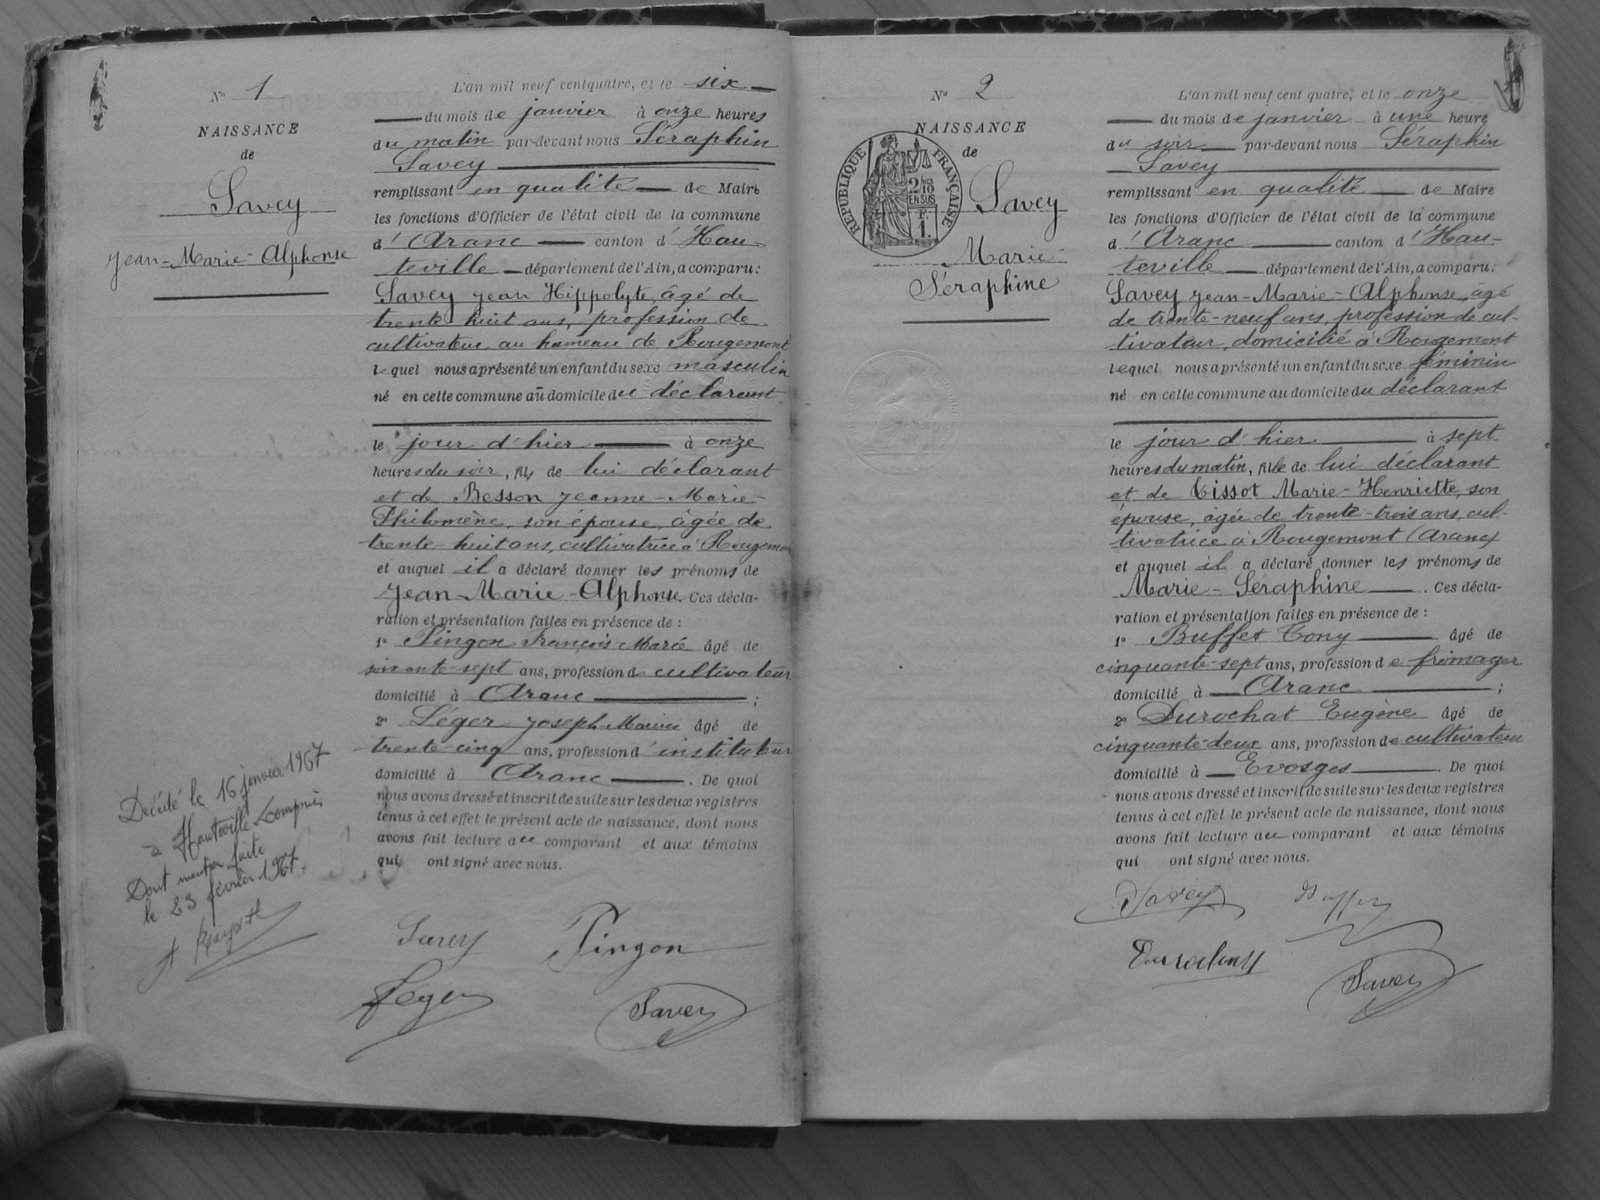 N° 1
NAISSANCE
de
Savey
Jean-Marie-Alphonse
L'an mil neuf cent quatre, et le six
du mois de janvier à onze heures
du matin par-devant nous Séraphin
Savey
remplissant en qualité de Maire
les fonctions d'Officier de l'état civil de la commune
d'Aranc canton d'Hau-
teville département de l'Ain, a comparu :
Savey Jean Hippolyte, âgé de
trente huit ans, profession de
cultivateur au hameau de Rougemont
lequel nous a présenté un enfant du sexe masculin
né en cette commune au domicile du déclarant
le jour d'hier à onze
heures du soir, fils de lui déclarant
et de Besson Jeanne-Marie-
Philomène, son épouse, âgée de
trente-huit ans, cultivatrice à Rougemont
et auquel il a déclaré donner les prénoms de
Jean-Marie-Alphonse. Ces décla-
ration et présentation faites en présence de :
1° Pingon François Marie âgé de
soixante-sept ans, profession de cultivateur
domicilié à Aranc ;
2° Léger Joseph Marius âgé de
trente-cinq ans, profession d'instituteur
domicilié à Aranc. De quoi
nous avons dressé et inscrit de suite sur les deux registres
tenus à cet effet le présent acte de naissance, dont nous
avons fait lecture au comparant et aux témoins
qui ont signé avec nous.
Décédé le 16 janvier 1967
à Hauteville-Lompnès
Dont mention faite
le 23 février 1967.
Savey Pingon
Leger Savey
N° 2
NAISSANCE
de
REPUBLIQUE FRANÇAISE
2/10
EN SUS
F.
1.
Savey
Marie-
Séraphine
L'an mil neuf cent quatre, et le onze
du mois de janvier à une heure
du soir par-devant nous Séraphin
Savey
remplissant en qualité de Maire
les fonctions d'Officier de l'état civil de la commune
d'Aranc canton d'Hau-
teville département de l'Ain, a comparu :
Savey Jean-Marie-Alphonse, âgé
de trente-neuf ans, profession de cul-
tivateur, domicilié à Rougemont
lequel nous a présenté un enfant du sexe féminin
né en cette commune au domicile du déclarant
le jour d'hier à sept
heures du matin, fille de lui déclarant
et de Tissot Marie-Henriette, son
épouse, âgée de trente-trois ans, cul-
tivatrice à Rougemont (Aranc)
et auquel il a déclaré donner les prénoms de
Marie-Séraphine. Ces décla-
ration et présentation faites en présence de :
1° Buffet Tony âgé de
cinquante-sept ans, profession de fromager
domicilié à Aranc ;
2° Durochat Eugène âgé de
cinquante-deux ans, profession de cultivateur
domicilié à Evosges. De quoi
nous avons dressé et inscrit de suite sur les deux registres
tenus à cet effet le présent acte de naissance, dont nous
avons fait lecture au comparant et aux témoins
qui ont signé avec nous.
Savey Buffet
Durochat Savey